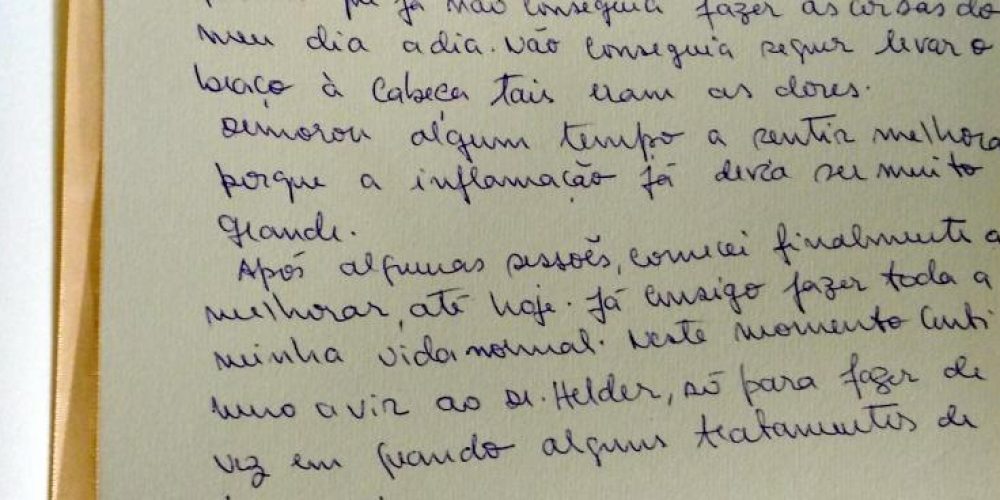 já não conseguia fazer as coisas do
meu dia a dia. Não conseguia sequer levar o
braço à cabeça tais eram as dores.
Demorou algum tempo a sentir melhora
porque a inflamação já devia ser muito
grande.
Após algumas sessões, comecei finalmente a
melhorar, até hoje. Já consigo fazer toda a
minha vida normal. Neste momento conti
nuo a vir ao Sr. Helder, só para fazer de
vez em quando alguns tratamentos de